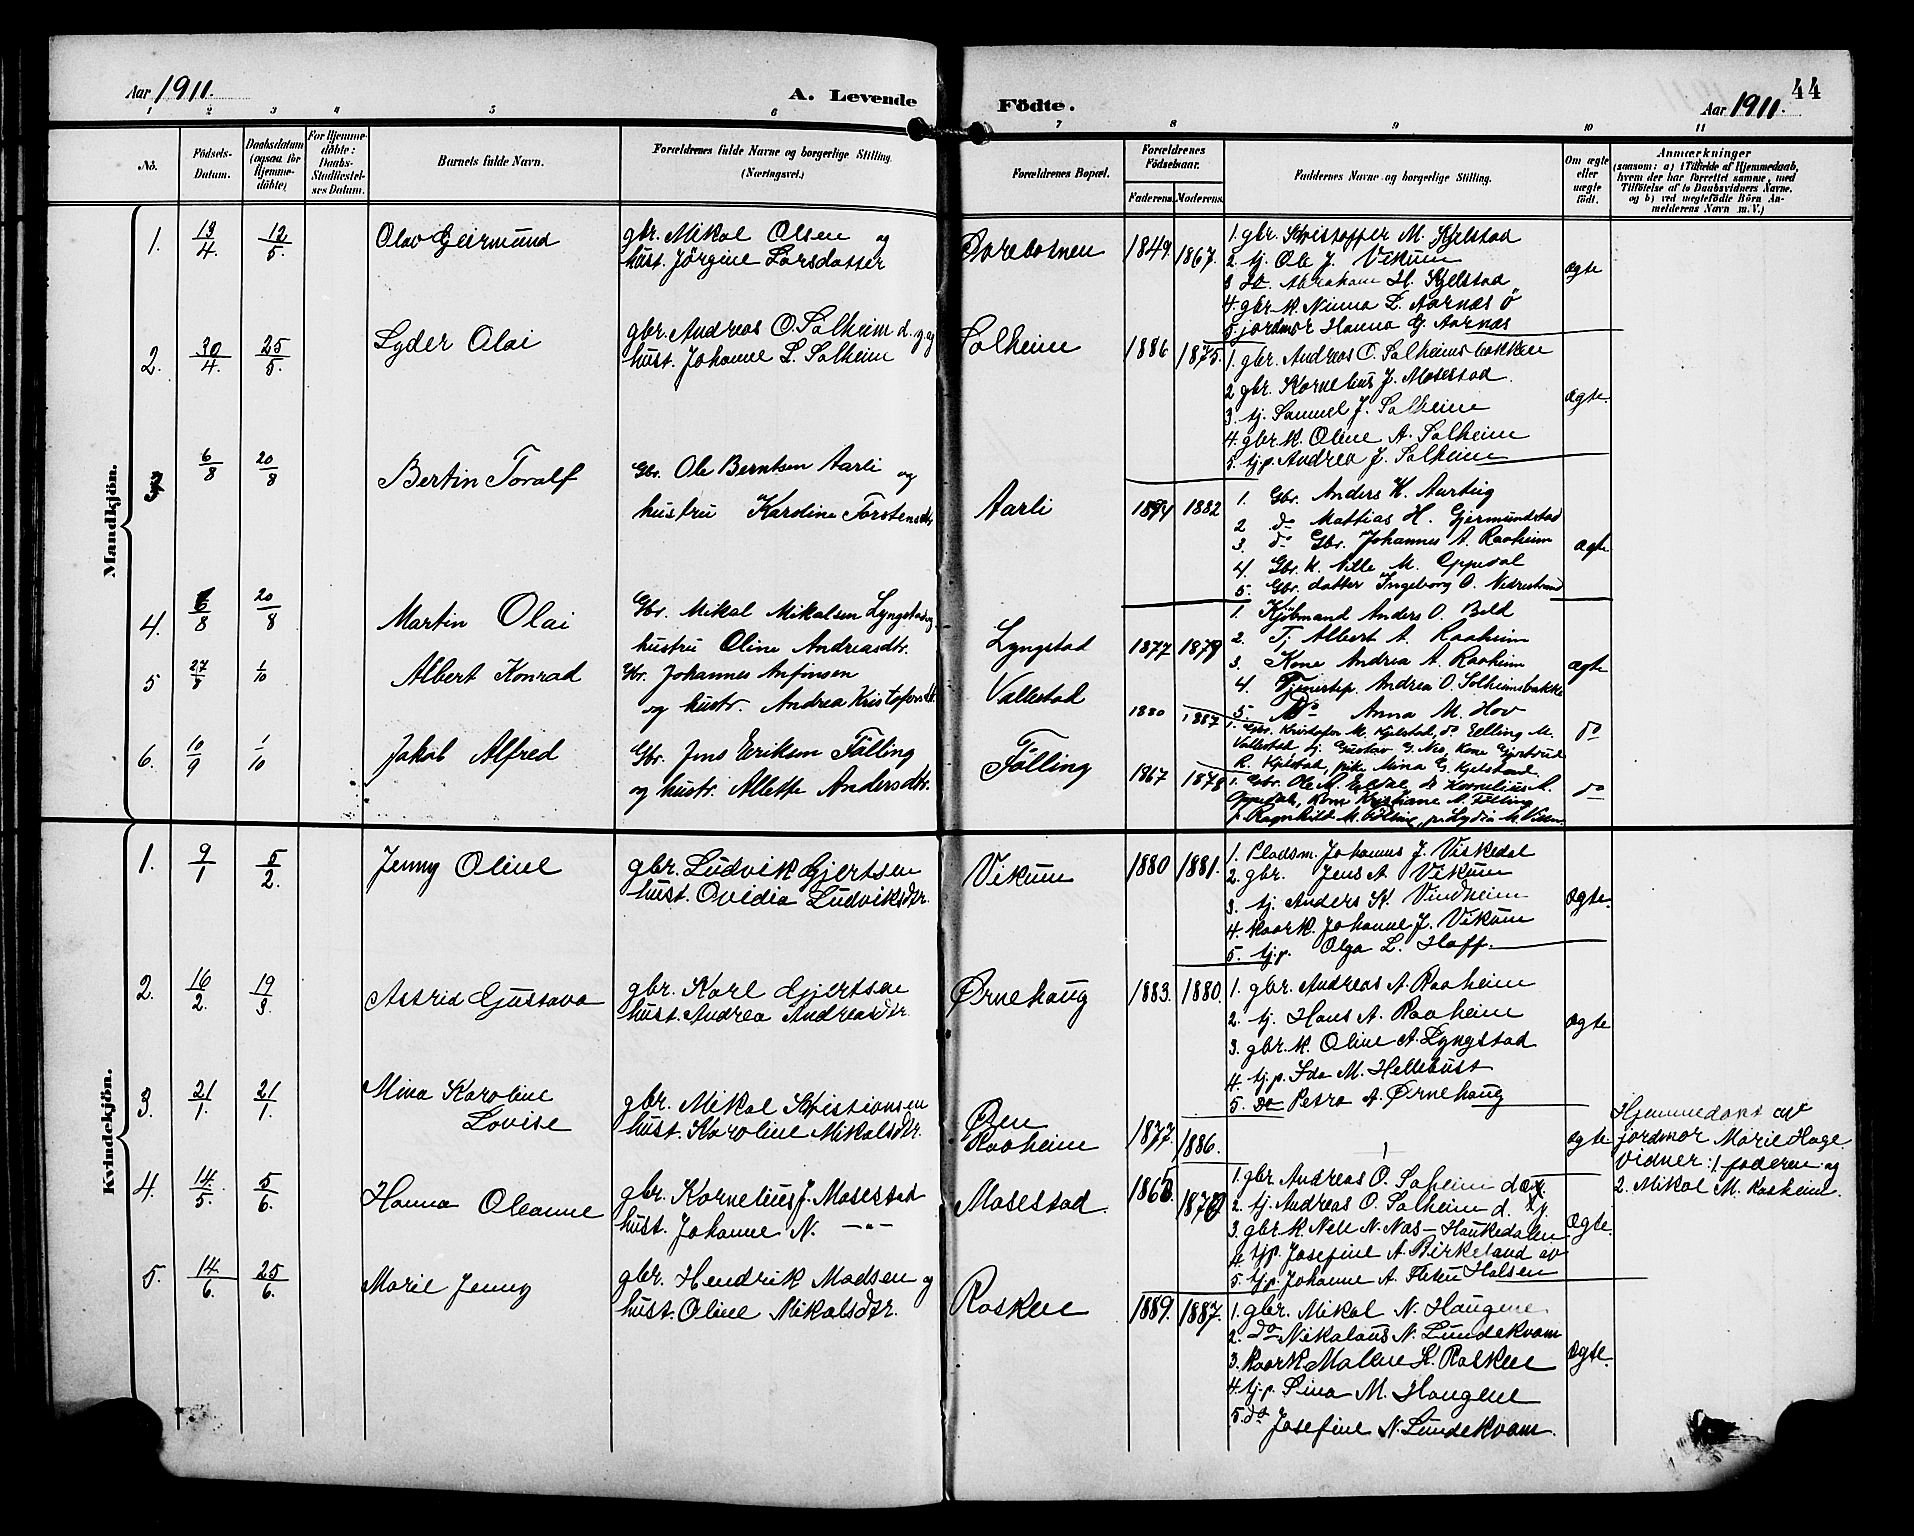 Aar 1911.
A. Levende
Födte.
44
Aar 1911.
1 2 3 4 5 6 7 8 9 10 11
No.
Födsels-Datum.
Daabsdatum (ogsaa for Hjemme-döbte)
For Hjemme-döbte: Daabs-Stadfæstel-ses Datum.
Barnets fulde Navn.
Forældrenes fulde Navne og borgerlige Stilling. (Næringsvei.)
Forældrenes Bopæl.
Forældrenes Födselsaar.
Faderens. Moderens.
Faddernes Navne og borgerlige Stilling.
Om ægte eller uægte födt.
Anmærkninger
(saasom: a) i Tilfælde af Hjemmedaab, hvem der har forrettet samme, med Tilföielse af to Daabsvidners Navne. og b) ved uægtefödte Börn An-melderens Navn m. V.)
Mandkjön.
1. 13/4 12/5. Olav Geirmund
gbr. Mikal Olsen og
hust. Jörgine Larsdatter
1849. 1867.
1. gbr. Kristoffer M. Kjelstad
2. tj. Ole J. Vikum
3 do. Abraham H. Kjelstad
4. gbr. k. Ninna L. Aarnæs ö
5. jordmor Hanna G. Aarnæs
ægte
2. 30/4. 25/5. Lyder Olai
gbr. Andreas O. Solheim d. y. og
hust. Johanne L. Solheim
Solheim
1886 1875.
1. gbr. Andreas O. Solheimsbakken
2 gbr. Kornelius J. Mosestad.
3. tj. Samuel J. Solheim
4. gbr. k. Oline A. Solheim
5. tj.p. Andrea J. Solheim
ægte.
3 6/8 20/8 Bertin Toralf
Gbr. Ole Berntsen Aarli og
hustru Karoline Torstensdtr.
Aarli
1882
1. Gbr. Anders K. Aurtug
2 do Mattias H. Gjermundstad
3. do Gbr. Johannes A. Raaheim
4. Gbr. k. Nille M. Oppedal
5. Gbr. datter Ingeborg O. Nedrestrand
Ægte
4. 6/8 20/8 Martin Olai
Gbr. Mikal Mikalsen Lyngstad og
hustru Oline Andreasdtr.
Lyngstad
1877 1879
1. Kjöbmand Anders O. Beld
2. Tj Albert A. Raaheim
3. Kone Andrea A. Raaheim
4. Tjenestep. Andrea O. Solheimsbakke
5. Do Anna M. Hov
Ægte
5 27/8 1/10 Albert Konrad
Gbr. Johannes Anfinsen
og hustr. Andrea Kristofersdtr.
Vallestad
1880 1887
1. Gbr. Kristofer M. Kjelstad, do Elling M.
Vallestad, tj. Gustav G. Nes, Kone Gjertrud
R. Kjelstad, pike Mina G. Kjelstad.
do
6. 10/9 1/10 Jakob Alfred
Gbr. Jens Eriksen Fölling
og hustr. Alette Andersdtr.
Fölling
1867 1878
1. Gbr. Ole A. Eldal, do Kornelius A.
Oppedal, Kone Kristiane A. Fölling
p. Ragnhild M. Fölling, p. Lydia M.
do
Kvindekjön.
1. 9/1 5/2. Jenny Oline
gbr. Ludvik Gjertsen
hust. Ovidia Ludviksdtr.
Vikum
1880 1881.
1. Pladsm. Johannes J. Viskedal
2. gbr. Jens A Vikum
3. tj. Anders K. Vindheim
4. kaark. Johanne J. Vikum
5. tj.p. Olga L. Hoff.
ægte.
2. 16/2. 19/3. Astrid Gustava
gbr. Karl Gjertsen
hust. Andrea Andreasdtr.
Ørnehaug
1883. 1880.
1. gbr. Andreas A. Raaheim
2. tj. Hans A. Raaheim
3. gbr. k. Oline A. Lyngstad
4. tj.p. Ida M. Hellebust
5. Do Petra A. Ørnehaug
ægte
3. 21/1. 21/1. Mina Karoline
Lovise
gbr. Mikal Kristiansen
hust. Karoline Mikalsdtr.
Øen
Raaheim
1877. 1886.
ægte.
Hjemmedöpt av
jordmor Marie Hage
vidner: 1. faderen og
2. Mikal M. Raaheim.
4. 14/5. 5/6. Hanna Oleanne
gbr. Kornelius J. Mosestad
hust. Johanne N. —"—
Mosestad.
1865 1870
1. gbr. Andreas O. Solheim d.
2. tj. Andreas O. Solheim d. y.
3. gbr. k Nelle N. Nas-Haukedalen
4. tj.p. Josefine A. Birkeland av
5. tj.p. Johanne A. Halsen
ægte.
5. 14/6. 25/6. Marie Jenny
gbr. Hendrik Madsen og
hust. Oline Mikalsdtr.
1889. 1887.
1. gbr. Mikal N. Haugene
2. do Nikolaus N. Lundekvam
3. kaark Malene
4. tj.p. Sina M. Haugene
5. do Josefine N. Lundekvam.
ægte.